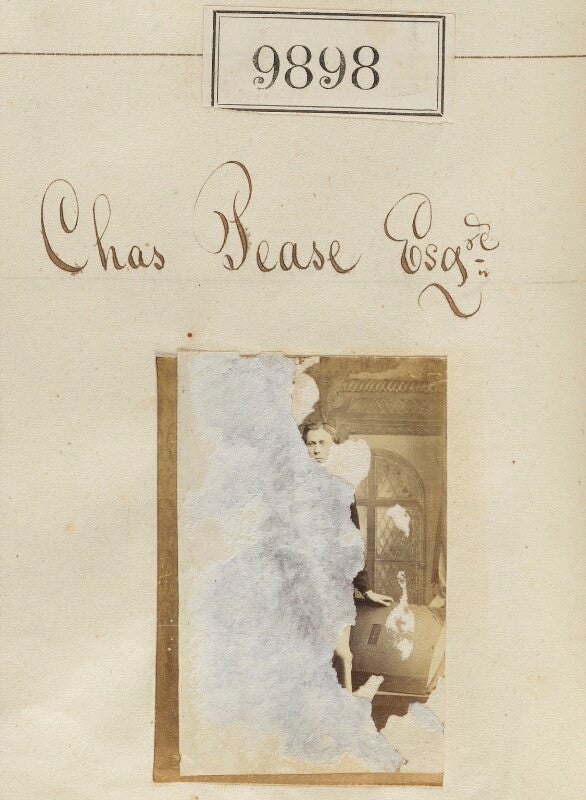 9898
Chas Pease Esqre